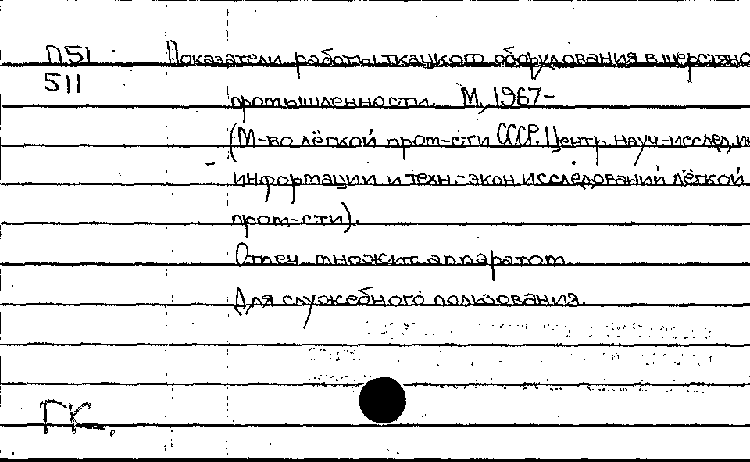 П51 Показатели работы ткацкого оборудования в шерстяно
511
промышленности. М., 1967-
(М-во лёгкой пром-сти СССР. Центр. науч.-исслед. ин
информации и техн.-экон. исследований лёгкой
пром-сти).
Отпеч. множит. аппаратом.
Для служебного пользования.
ГК.